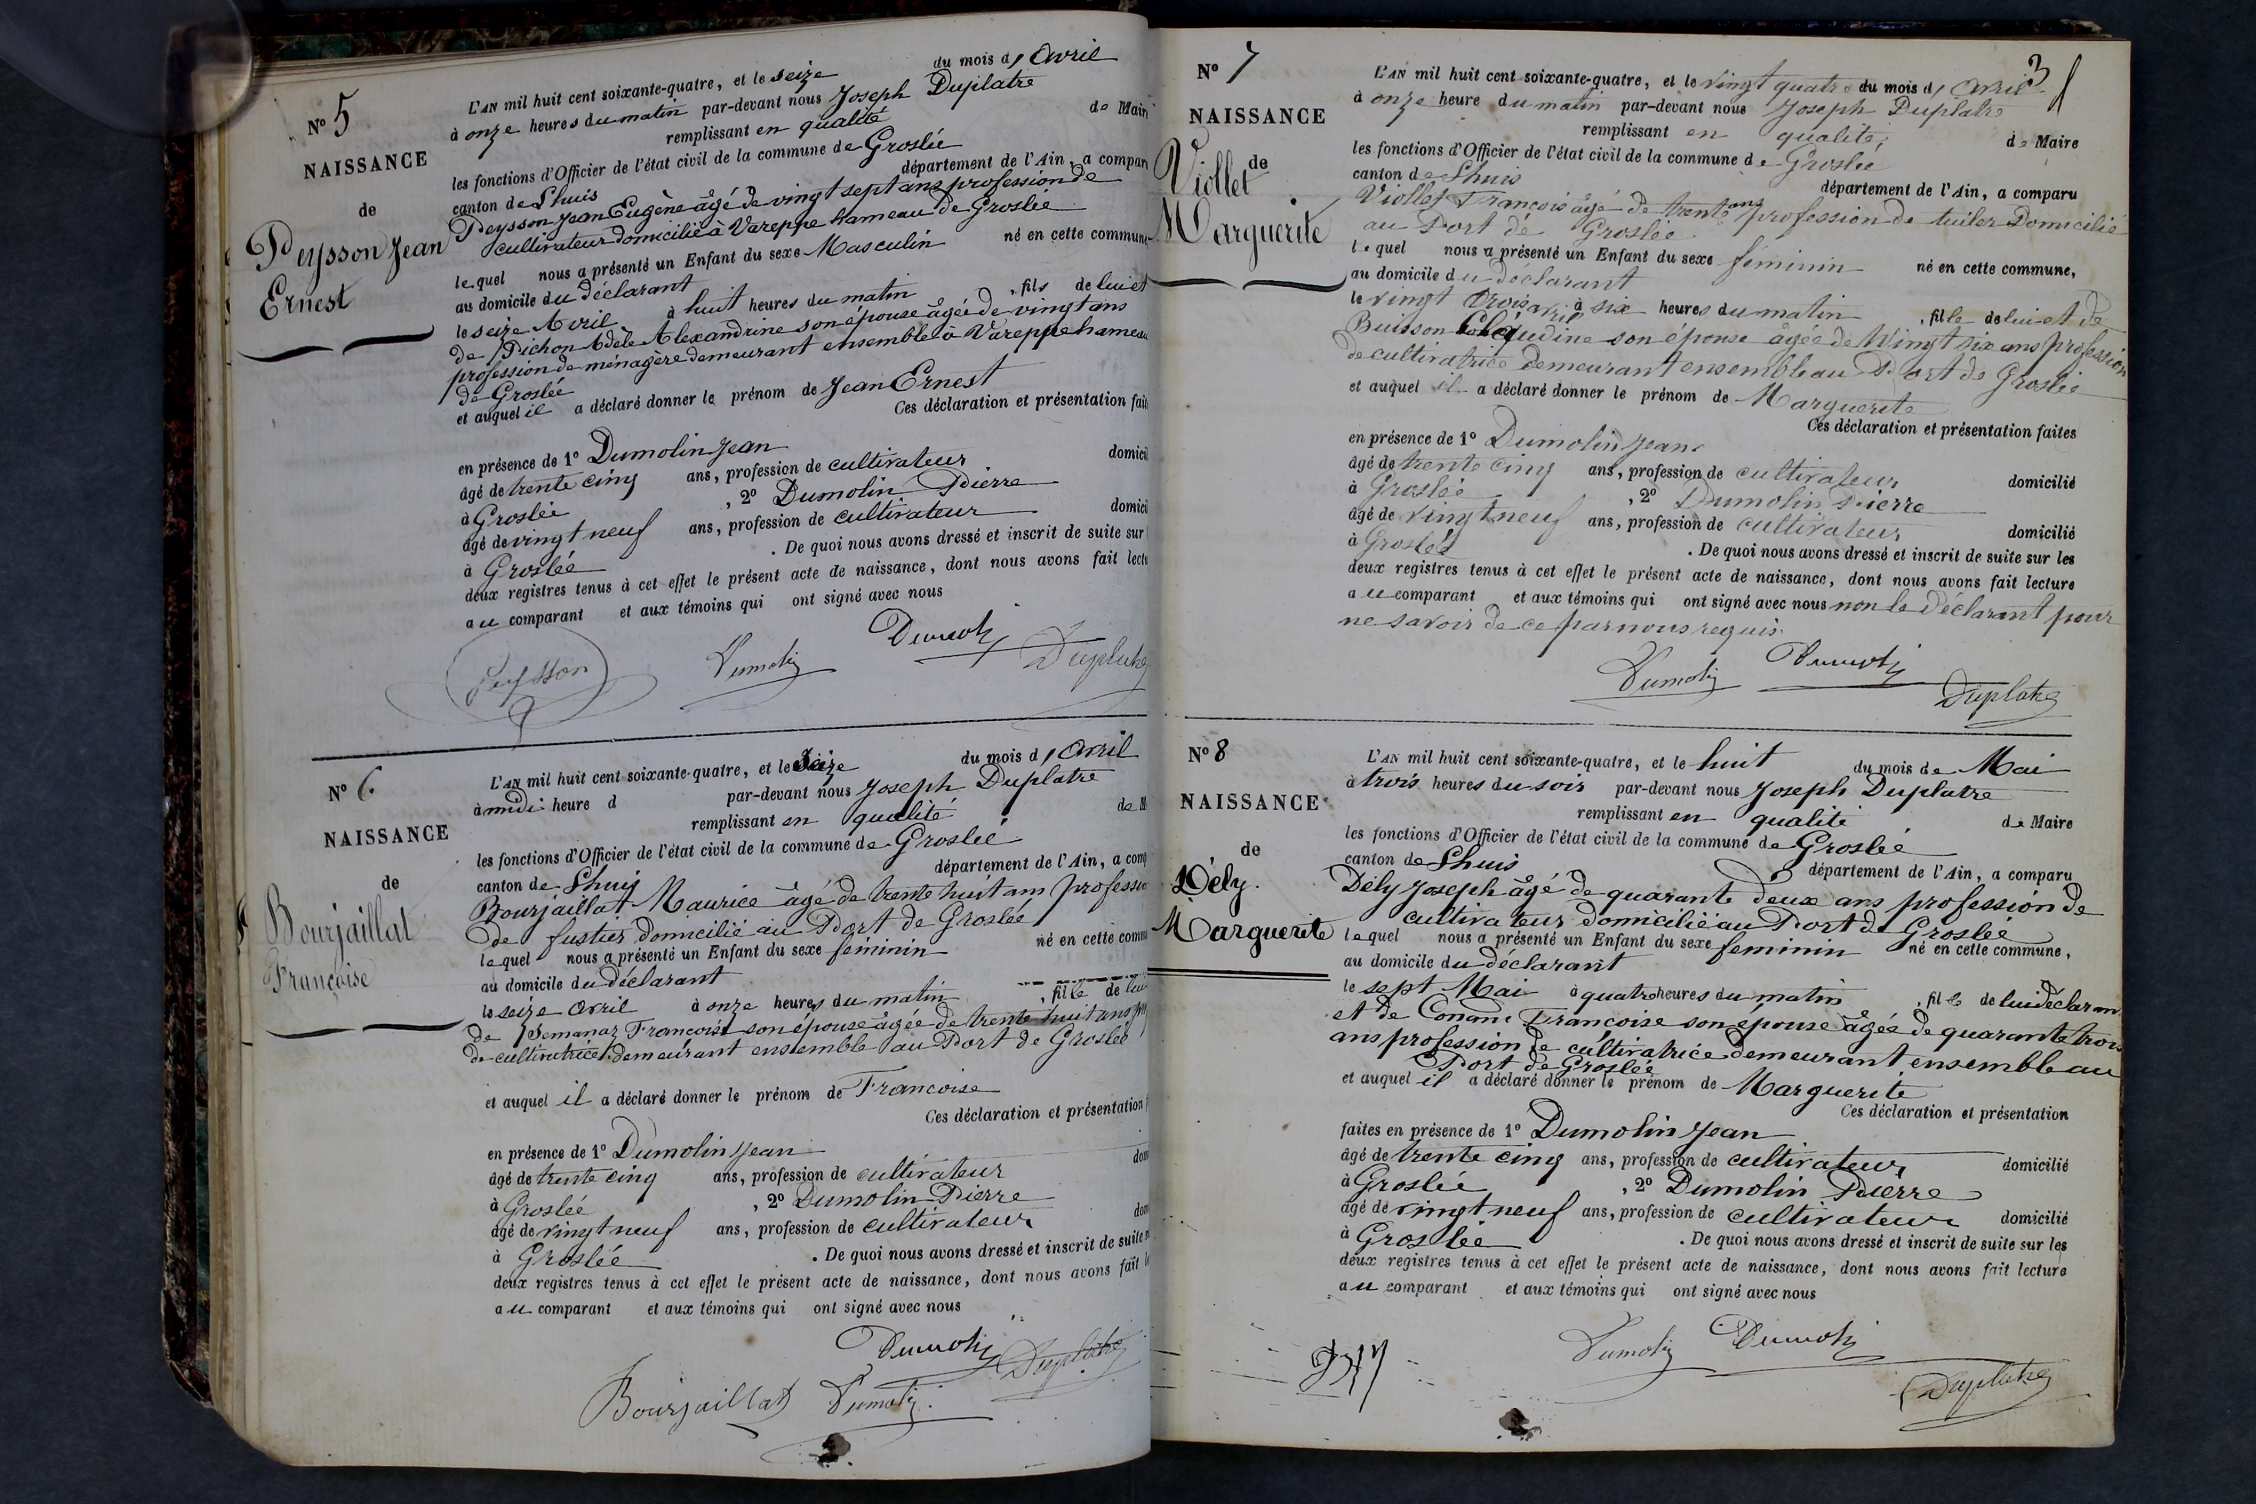 N° 5
NAISSANCE
de
Peysson Jean
Ernest
L'AN mil huit cent soixante-quatre, et le seize du mois d'Avril
à onze heures du matin par-devant nous Joseph Duplatre
remplissant en qualité de Mair
les fonctions d'Officier de l'état civil de la commune de Groslée
canton de Lhuis département de l'Ain, a compar
Peysson Jean Eugène âgé de vingt sept ans profession de
cultivateur domicilié à Vareppe hameau de Groslée
lequel nous a présenté un Enfant du sexe Masculin né en cette commune
au domicile du déclarant
le seize Avril à huit heures du matin, fils de lui et
de Pichon Adèle Alexandrine son épouse âgée de vingt ans
profession de ménagère demeurant ensemble à Vareppe hameau
de Groslée
et auquel il a déclaré donner le prénom de Jean Ernest
Ces déclaration et présentation fait
en présence de 1° Dumolin Jean
âgé de trente cinq ans, profession de cultivateur domicil
à Groslée, 2° Dumolin Pierre
âgé de vingt neuf ans, profession de cultivateur domici
à Groslée. De quoi nous avons dressé et inscrit de suite sur
deux registres tenus à cet effet le présent acte de naissance, dont nous avons fait lectu
au comparant et aux témoins qui ont signé avec nous
Peysson Dumolin Dumolin Duplatre
N° 6
NAISSANCE
de
Bourjaillat
Françoise
L'AN mil huit cent soixante-quatre, et le seize du mois d'Avril
à midi heure d par-devant nous Joseph Duplatre
remplissant en qualité de M
les fonctions d'Officier de l'état civil de la commune de Groslée
canton de Lhuis département de l'Ain, a comp
Bourjaillat Maurice âgé de trente huit ans professio
de fustier domicilié au Port de Groslée
lequel nous a présenté un Enfant du sexe féminin né en cette comm
au domicile du déclarant
le seize Avril à onze heures du matin, fille de lui
de Françoise son épouse âgée de trente huit ans
de cultivatrice demeurant ensemble au Port de Groslée
et auquel il a déclaré donner le prénom de Francoise
Ces déclaration et présentation f
en présence de 1° Dumolin Jean
âgé de trente cinq ans, profession de cultivateur dom
à Groslée, 2° Dumolin Pierre
âgé de vingt neuf ans, profession de cultivateur dom
à Groslée. De quoi nous avons dressé et inscrit de suite
deux registres tenus à cet effet le présent acte de naissance, dont nous avons fait l
au comparant et aux témoins qui ont signé avec nous
Dumolin Duplatre
Bourjaillat Dumolin
3
N° 7
NAISSANCE
de
Viollet
Marguerite
L'AN mil huit cent soixante-quatre, et le vingt quatre du mois d'Avril
à onze heure du matin par-devant nous Joseph Duplatre
remplissant en qualité, de Maire
les fonctions d'Officier de l'état civil de la commune de Groslée
canton de Lhuis département de l'Ain, a comparu
Viollet François âgé de trente ans profession de tuiler Domicilié
au Port de Groslée
lequel nous a présenté un Enfant du sexe féminin né en cette commune,
au domicile du déclarant
le vingt trois avril à six heures du matin, fille de lui et de
Buisson Claudine son épouse âgée de Vingt six ans profession
de cultivatrice demeurant ensemble au Port de Groslée
et auquel il a déclaré donner le prénom de Marguerite
Ces déclaration et présentation faites
en présence de 1° Dumolin Jean
âgé de trente cinq ans, profession de cultivateur domicilié
à Groslée, 2° Dumolin Pierre
âgé de vingt neuf ans, profession de cultivateur domicilié
à Groslée. De quoi nous avons dressé et inscrit de suite sur les
deux registres tenus à cet effet le présent acte de naissance, dont nous avons fait lecture
au comparant et aux témoins qui ont signé avec nous non le Déclarant pour
ne savoir de ce par nous requis.
Dumolin Dumolin Duplatre
N° 8
NAISSANCE
de
Dély
Marguerite
L'AN mil huit cent soixante-quatre, et le huit du mois de Mai
à trois heures du soir par-devant nous Joseph Duplatre
remplissant en qualité de Maire
les fonctions d'Officier de l'état civil de la commune de Groslée
canton de Lhuis département de l'Ain, a comparu
Dély Joseph âgé de quarante deux ans profession de
cultivateur domicilié au Port de Groslée
lequel nous a présenté un Enfant du sexe féminin né en cette commune,
au domicile du déclarant
le sept Mai à quatre heures du matin, fille de lui déclaran
et de Francoise son épouse âgée de quarante trois
ans profession de cultivatrice demeurant ensemble au
Port de Groslée
et auquel il a déclaré donner le prénom de Marguerite
Ces déclaration et présentation
faites en présence de 1° Dumolin Jean
âgé de trente cinq ans, profession de cultivateur domicilié
à Groslée, 2° Dumolin Pierre
âgé de vingt neuf ans, profession de cultivateur domicilié
à Groslée. De quoi nous avons dressé et inscrit de suite sur les
deux registres tenus à cet effet le présent acte de naissance, dont nous avons fait lecture
au comparant et aux témoins qui ont signé avec nous
Dumolin Dumolin
Duplatre